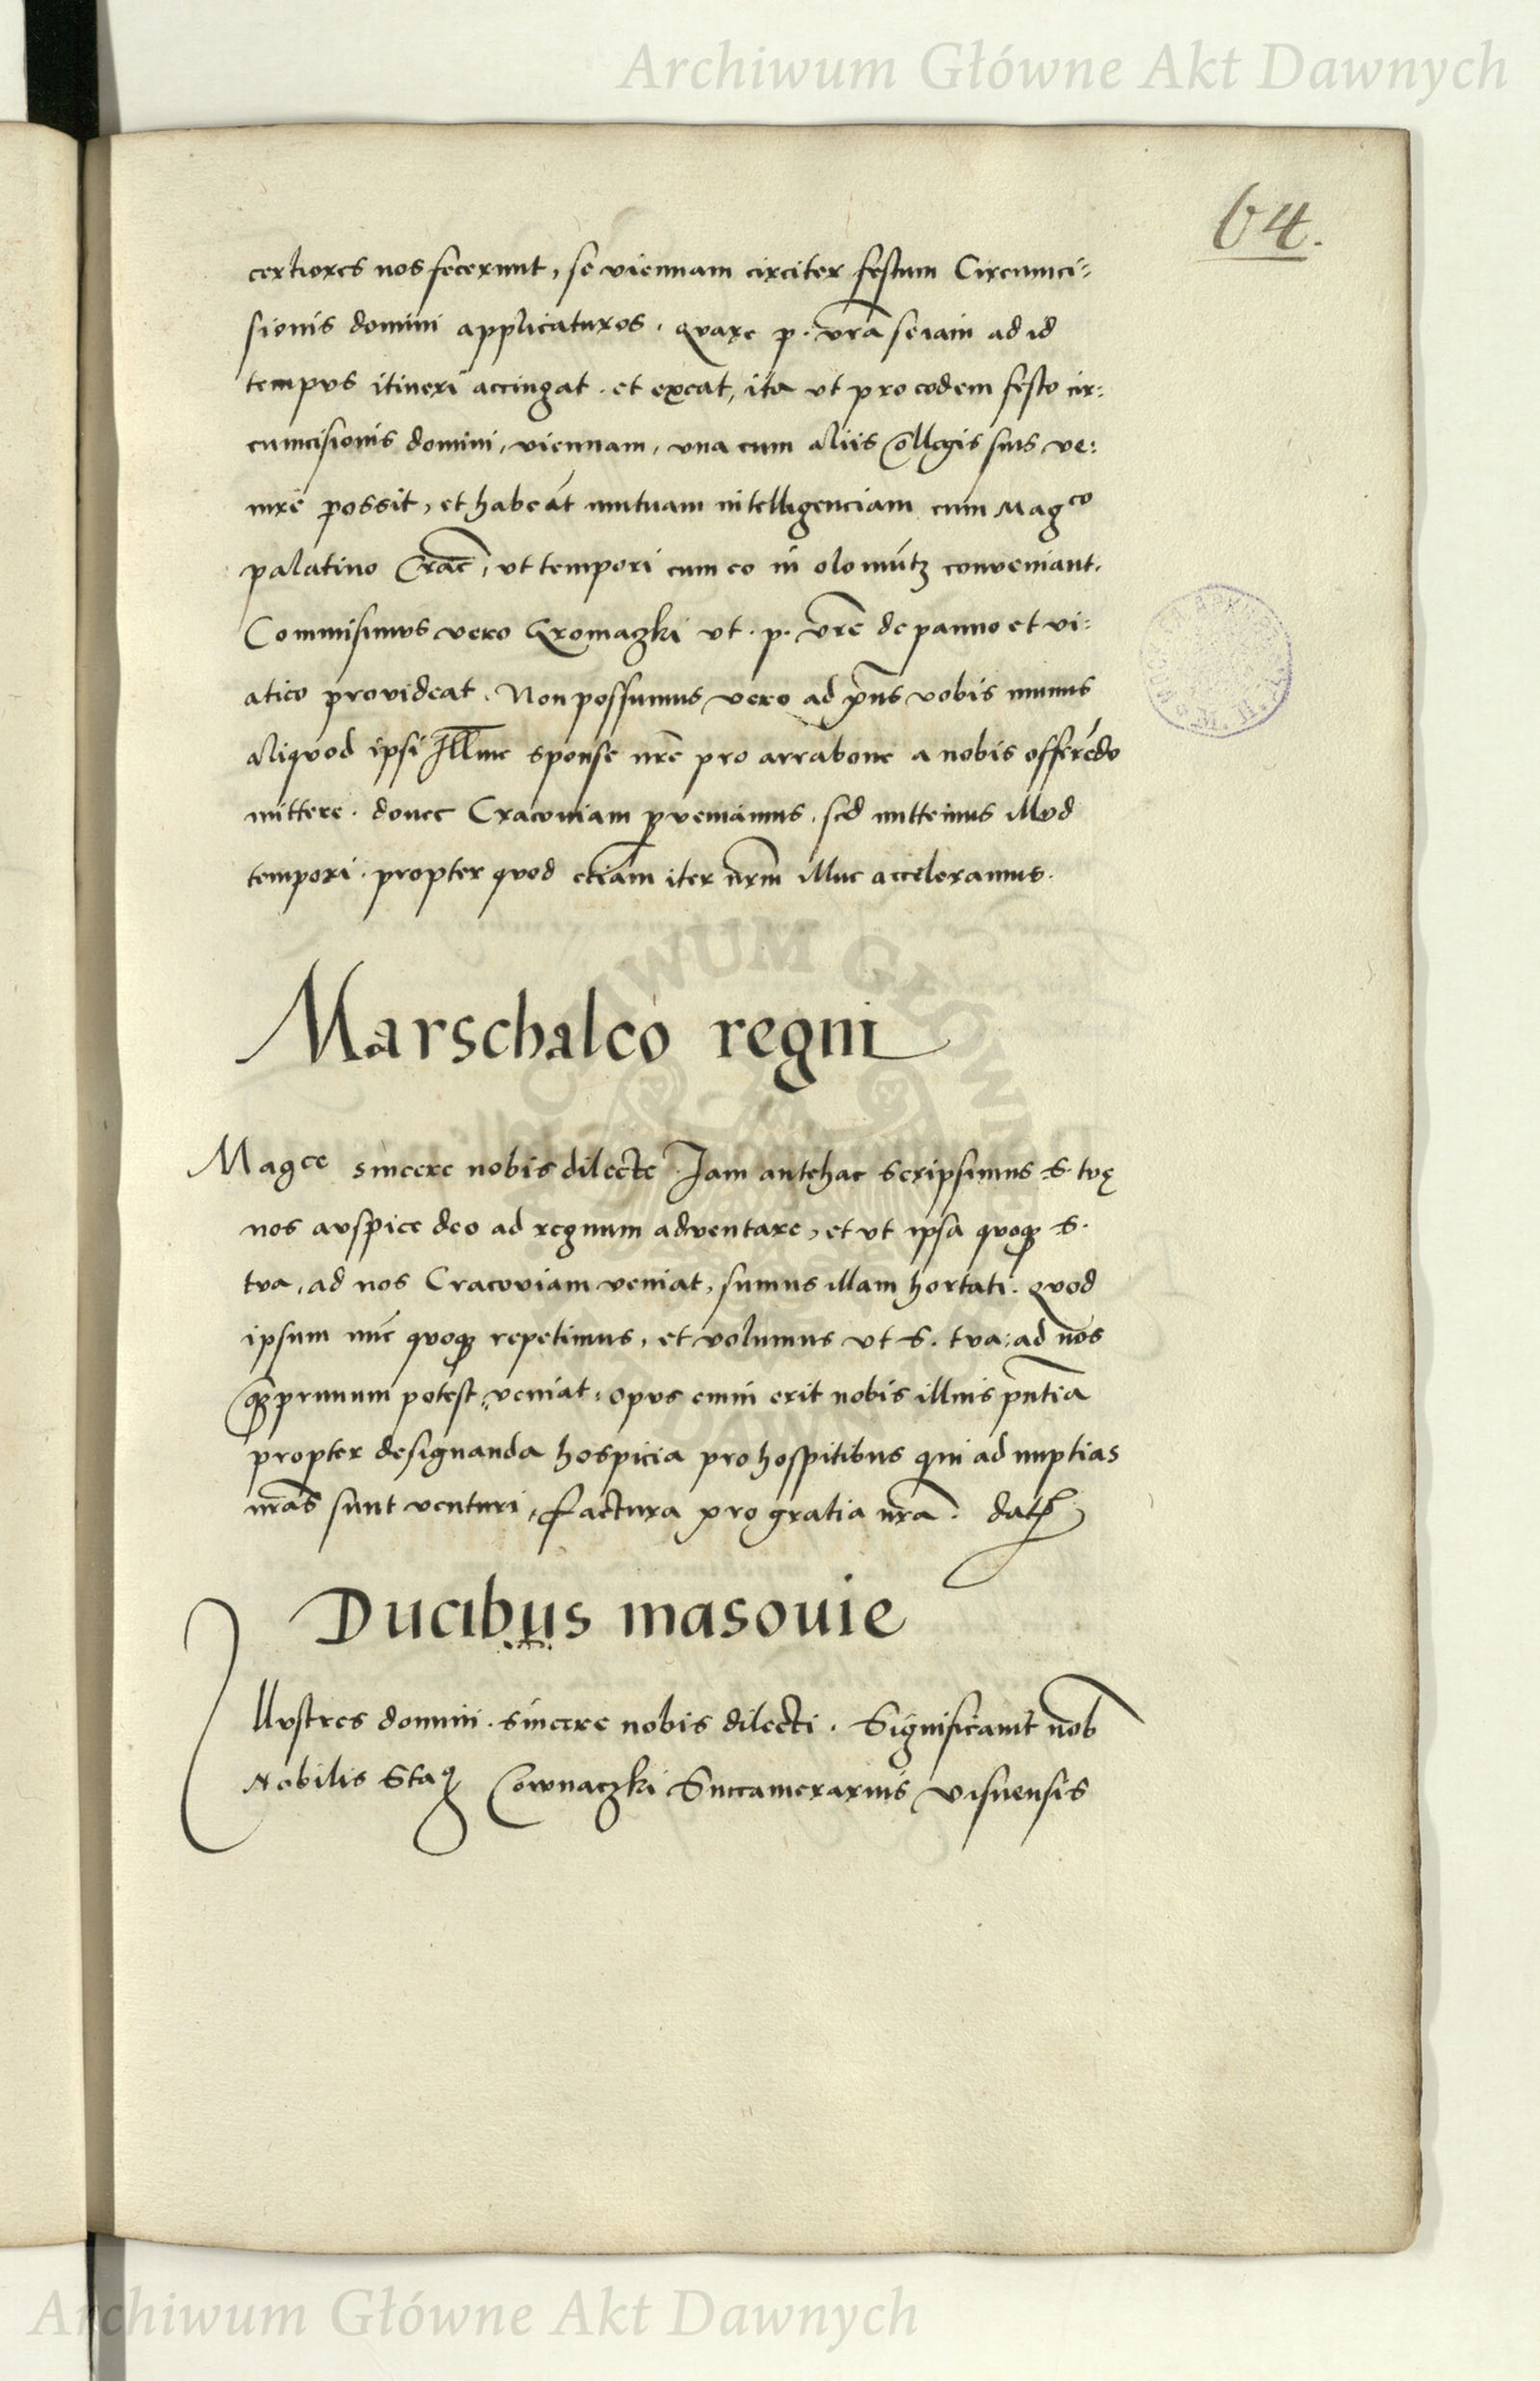 Archiwum Główne Akt Dawnych
64.
certiores nos fecerunt, se viennam circiter festum Circumci-
sionis domini applicaturos. quare p. vra̅ se iam ad id
tempus itineri accingat. et exeat, ita ut pro eodem festo cir-
cumcisionis domini, viennam, vna cum aliis co̅llegis suis ve-
nire possit, et habea̅t mutuam intelligenciam cum Mag^co
palatino Crac̅, vt tempori cum eo in olomu̅tz conveniant.
Commisimus vero Gromazki vt. p. vre̅ de panno et vi-
atico provideat. Non possumus vero ad p̅ns vobis munus
aliquod ipsi Ill̅me sponse nre̅ pro arrabone a nobis offere̅do
mittere. donec Cracouiam ꝑveniamus. sed mittemus illud
tempori. propter quod etiam iter nrm̅ illuc acceleramus.
Marschalco regni
Mag^ce sincere nobis dilecte Jam antehac scripsimus S. tvę
nos auspice deo ad regnum adventare, et vt ipsa quoqꝫ S.
tva, ad nos Cracoviam veniat, sumus illam hortati. quod
ipsum nu̅c quoqꝫ repetimus, et volumus vt S. tva: ad nos
qꝫprimum potest, veniat, opus enim erit nobis illius pn̅tia
propter designanda hospicia pro hospitibus qui ad nuptias
nra̅s sunt venturi, factura pro gratia nra̅. datꝭ
Ducibus masouie
Jllustres domini. sincere nobis dilecti. Significauit nob̅
Nobilis Sta^9 Cownaczki Succamerarius visnensis
Archiwum Główne Akt Dawnych